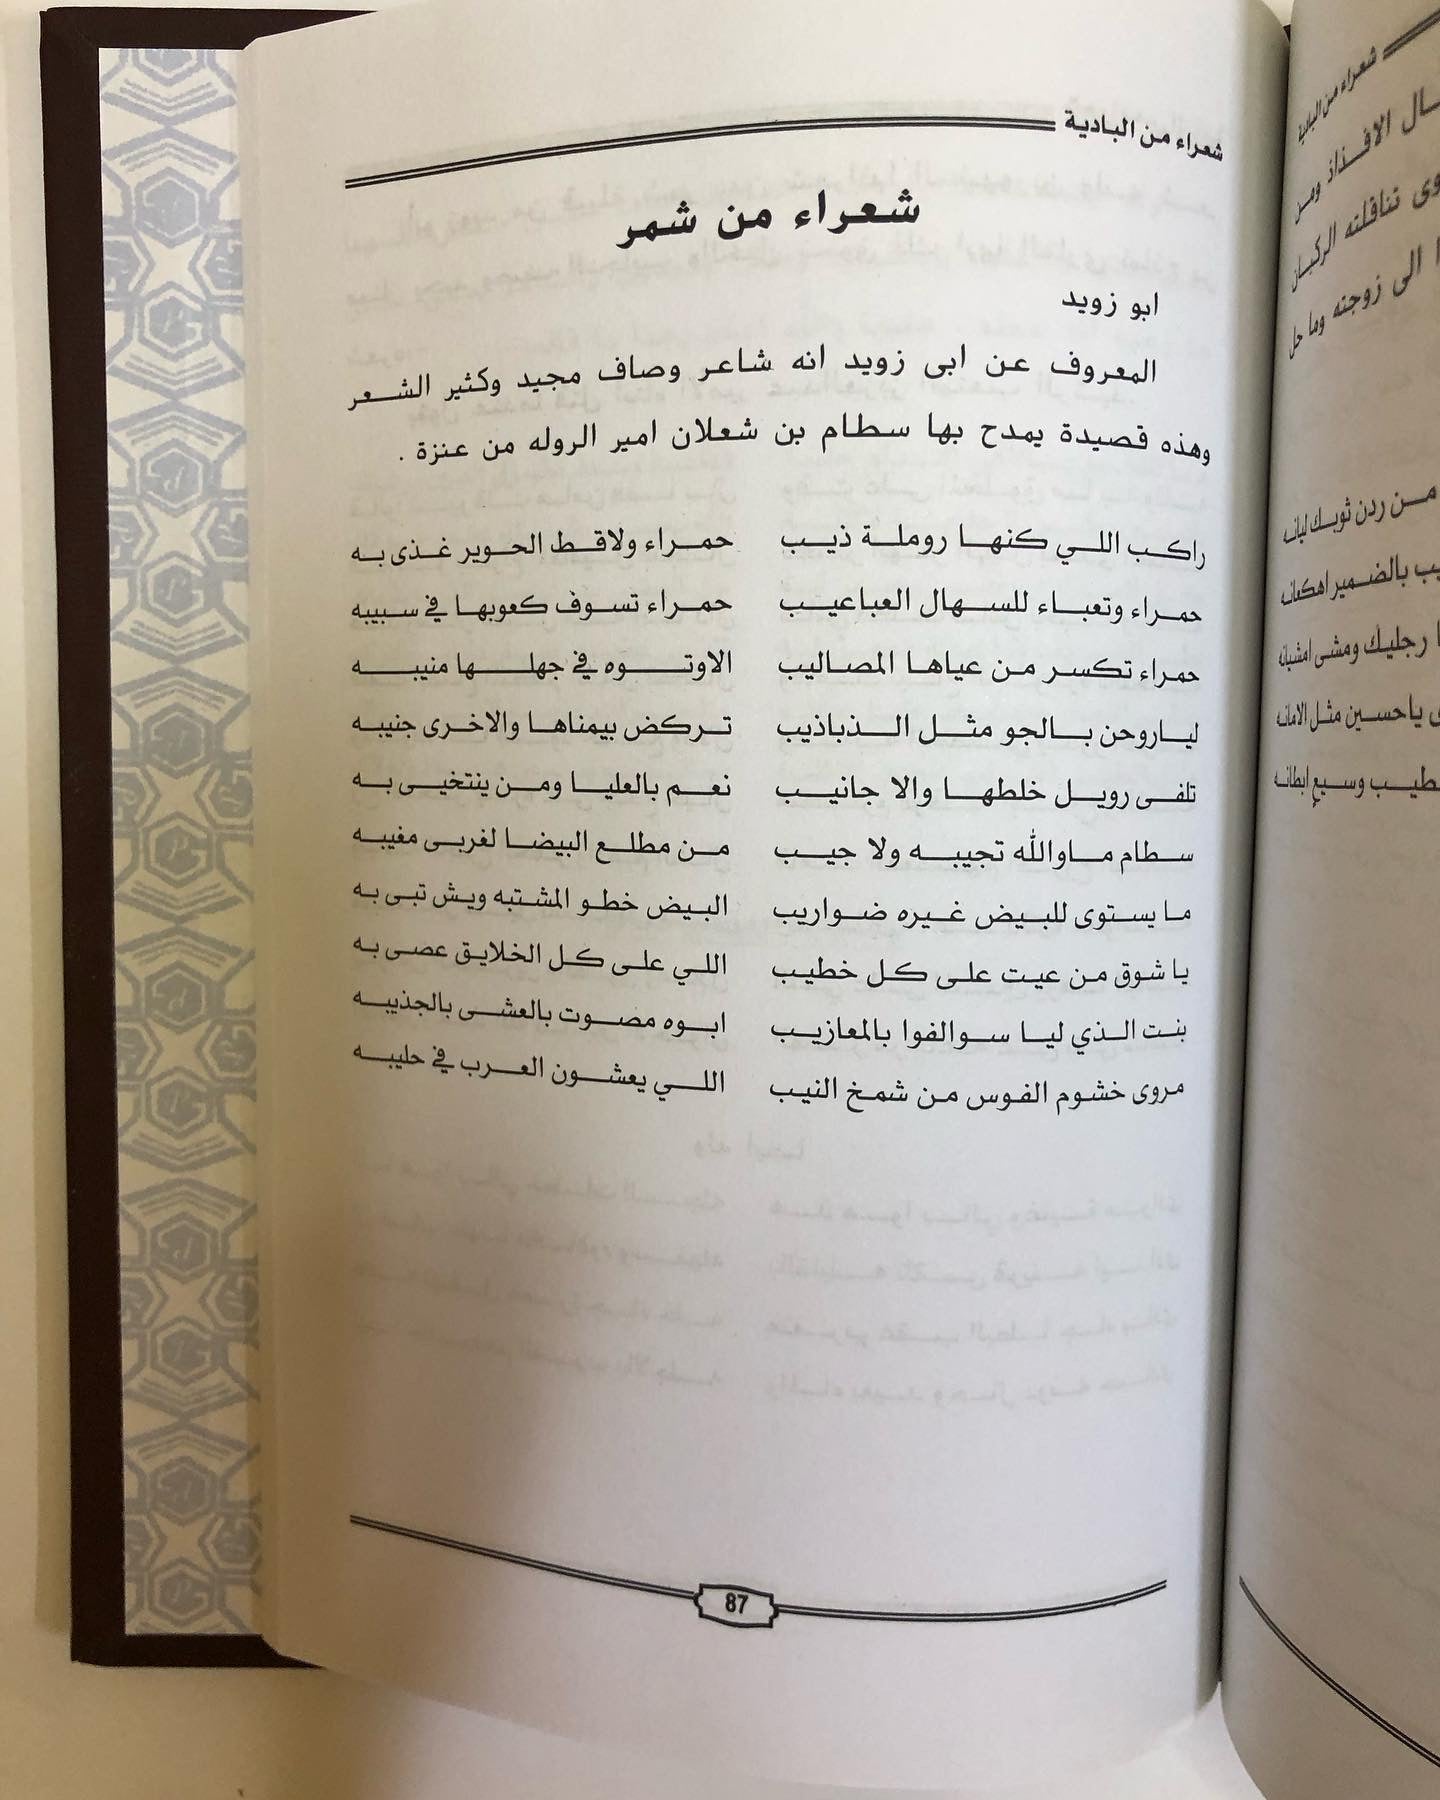 شعراء من البادية
شعراء من شمر
ابو زويد
المعروف عن ابى زويد انه شاعر وصاف مجيد وكثير الشعر
وهذه قصيدة يمدح بها سطام بن شعلان امير الروله من عنزة .
راكب اللي كنها روملة ذيب حمراء ولاقط الحوير غذى به
حمراء وتعباء للسهال العباعيب حمراء تسوف كعوبها في سبيبه
حمراء تكسر من عياها المصاليب الاوتوه في جهلها منيبه
لياروحن بالجو مثل الذباذيب تركض بيمناها والاخرى جنيبه
تلفى رويل خلطها والا جانيب نعم بالعليا ومن ينتخيى به
سطام ماوالله تجيبه ولا جيب من مطلع البيضا لغربى مغيبه
ما يستوى للبيض غيره ضواريب البيض خطو المشتبه ويش تبى به
يا شوق من عيت على كل خطيب اللي على كل الخلايق عصى به
بنت الذي ليا سوالفوا بالمعازيب ابوه مصوت بالعشى بالجذيبه
مروى خشوم الفوس من شمخ النيب اللي يعشون العرب في حليبه
87
شعراء من البادية
ال الافذاذ ومن
وى تناقلته الركبان
ا الى زوجته وما حل
من ردن ثوبك ليانه
يب بالضمير اهكانه
ا رجليك ومشى امشبانه
ى ياحسين مثل الامانه
طيب وسيع ابطانه